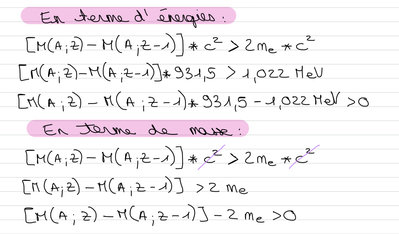 En terme d'énergies :
[M(A;Z)-M(A;Z-1)]*c² > 2me*c²
[M(A;Z)-M(A;Z-1)]*931,5 > 1,022 MeV
[M(A;Z) - M(A;Z-1)*931,5 - 1,022 MeV >0
En terme de masse :
[M(A;Z)-M(A;Z-1)]*c² > 2me*c²
[M(A;Z)-M(A;Z-1)] > 2 me
[M(A;Z) - M(A;Z-1)] - 2 me >0